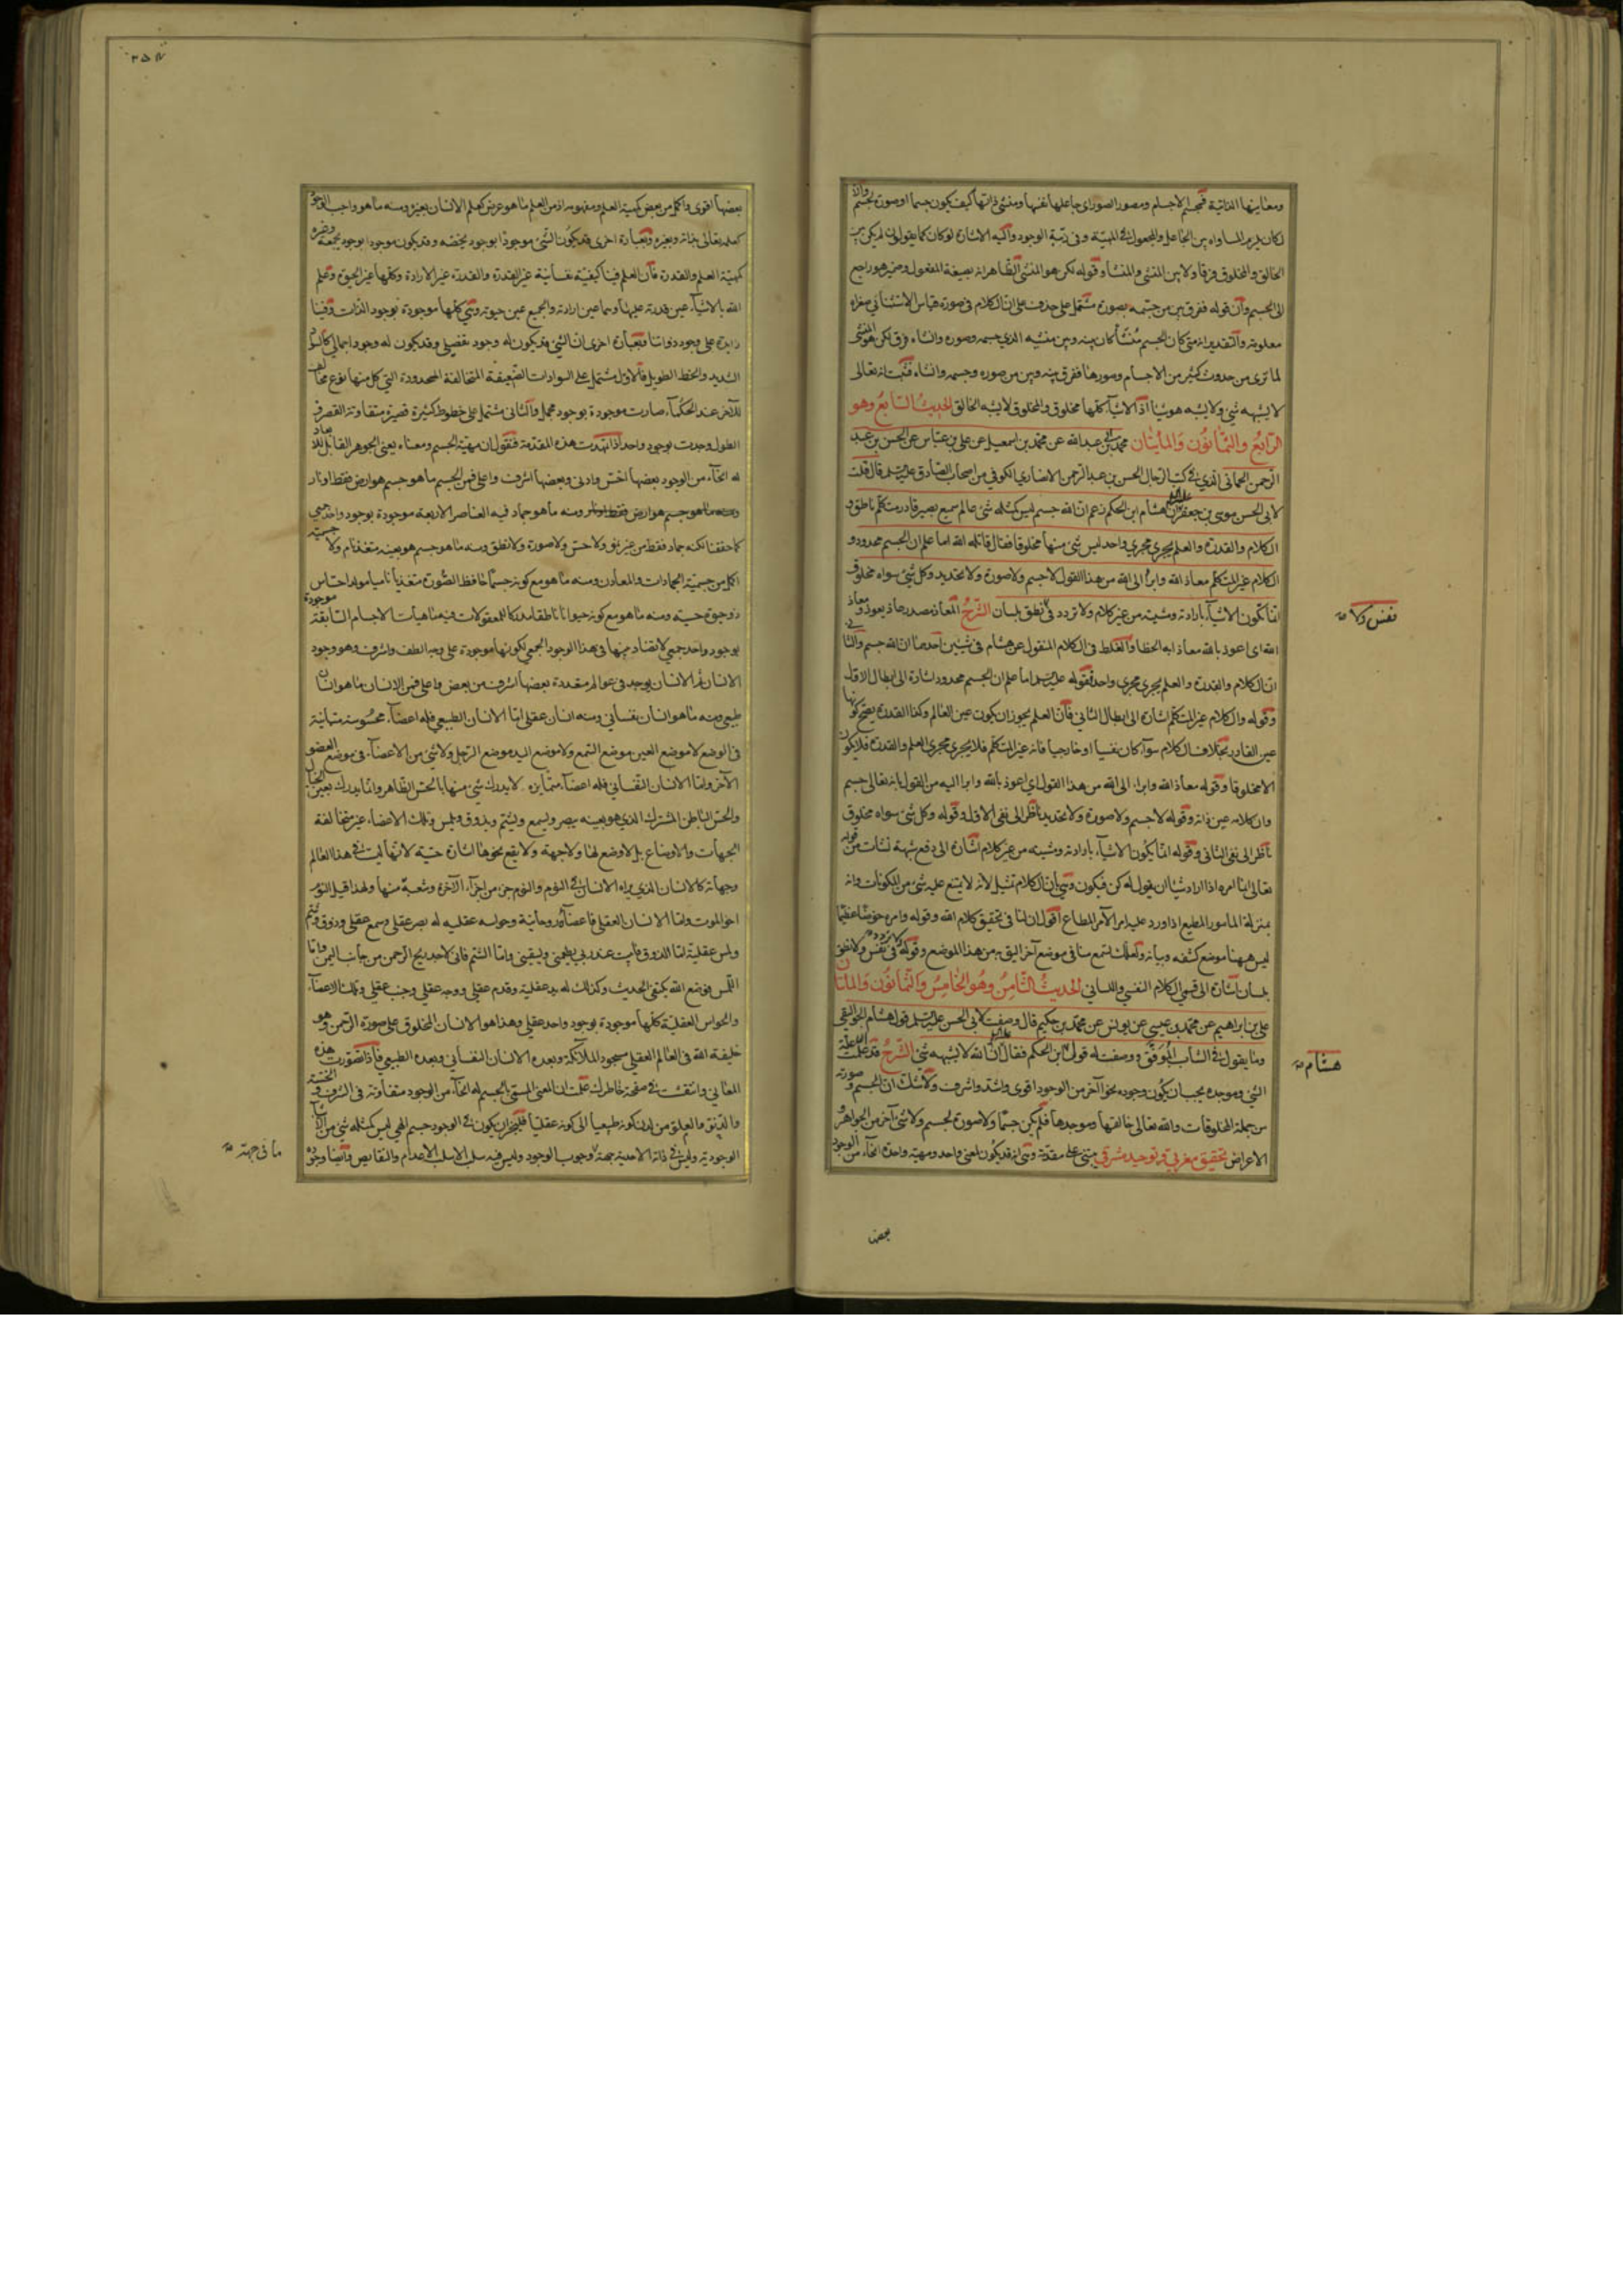 ومعاينها الذاتية فمجسم الاجسام ومصور الصور اى جاعلها بنفسها ومنشئ ذاتها كيف يكون جسما او صورة بجسم
لكان يلزم المساواة بين الجاعل والمجعول فى المهية وفى رتبة الوجود واليه الاشارة لو كان كما يقولون لم يكن بين
الخالق والمخلوق فرق ولا بين المنشئ والمنشأ وقوله لكن هو المنشئ الظاهر انه بصيغة المفعول وضمير هو راجع
الى الجسم وان قوله فرق بين من جسمه بصورة مشتمل على حذف على ان الكلام فى صورة قياس الاستثنائى
معلومة والتقدير انه متى كان الجسم منشأ كان بينه وبين منشئه الذى جسمه وصوره وانشاه فرق لكن هو المنشئ
لما ترى من حدوث كثير من الاجسام وصورها ففرق بينه وبين من صوره وجسمه وانشاه فثبت انه تعالى
لا يشبهه شئ ولا يشبه هو شيئا اذ الاشياء كلها مخلوق والمخلوق لا يشبه الخالق الحديث السابع وهو
الرابع والثمانون والمأيتان محمد بن ابى عبدالله عن محمد بن اسمعيل عن على بن عباس عن الحسن بن عبد
الرحمن الحمانى الذى فى كتب الرجال الحسن بن عبد الرحمن الانصارى الكوفى من اصحاب الصادق قال قلت
لابى الحسن موسى بن جعفر ان هشام ابن الحكم زعم ان الله جسم ليس كمثله شئ عالم سميع بصير قادر متكلم ناطق و
الكلام والقدرة والعلم يجرى مجرى واحد ليس شئ منها مخلوقا فقال قاتله الله اما علم ان الجسم محدود و
الكلام غير المتكلم معاذ الله وابرأ الى الله من هذا القول لا جسم ولا صورة ولا تحديد وكل شئ سواه مخلوق
انما تكون الاشياء بارادته ومشيته من غير كلام ولا تردد فى نطق بلسان الشرح المعاذ مصدر عاذ يعوذ ومعاذ
الله اى اعوذ بالله معاذا به الخطا والغلط فى الكلام المنقول عن هشام فى شيئين احدهما ان الله جسم والثانى
ان الكلام والقدرة والعلم يجرى مجرى واحد فقوله اما علم ان الجسم محدود اشارة الى ابطال الاول
وقوله والكلام غير المتكلم اشارة الى ابطال الثانى فان العلم يجوز ان يكون عين العالم وكذا القدرة يصح كونها
عين القادر بخلاف الكلام سواء كان نفسيا او خارجيا فانه غير المتكلم فلا يجرى مجرى العلم والقدرة فلا يكون
الا مخلوقا وقوله معاذ الله وابراء الى الله من هذا القول اى اعوذ بالله وابرا اليه من القول بانه تعالى جسم
وان كلامه عين ذاته وقوله لا جسم ولا صورة ولا تحديد ناظر الى نفى الاول وقوله وكل شئ سواه مخلوق
ناظر الى نفى الثانى وقوله انما يكون الاشياء بارادته ومشيته من غير كلام اشارة الى دفع شبهة نشأت من قوله
تعالى انما امره اذا اراد شيئا ان يقول له كن فيكون وهى ان الكلام تمثيل لانه لا يمتنع عليه شئ من المكونات وانه
بمنزلة المأمور المطيع اذا ورد عليه امر الآمر المطاع اقول ان لنا فى تحقيق كلام الله وقوله وامره خوضا عظيما
ليس ههنا موضع كشفه وبيانه ولعلك تسمع منا فى موضع آخر اليق به من هذا الموضع وقوله ولا تردد فى نفس ولا نطق
بلسان اشارة الى قسمى الكلام النفسى واللسانى الحديث الثامن وهو الخامس والثمانون والمأتان
على بن ابراهيم عن محمد بن عيسى عن يونس عن محمد بن حكيم قال وصفت لابى الحسن قول هشام الجواليقى
وما يقول فى الشاب الموفق ووصفت له قول ابن الحكم فقال ان الله لا يشبهه شئ الشرح قد علمت ان علة
الشئ وموجده يجب ان يكون وجوده نحوا آخر من الوجود اقوى واشد واشرف ولا شك ان الجسم وصورته
من جملة المخلوقات والله تعالى خالقها وموجدها فلم يكن جسما ولا صورة لجسم ولا شئ آخر من الجواهر و
الاعراض تحقيق مغربى وتوحيد مشرقى مبتنى على مقدمة وهى انه قد يكون لمعنى واحد ومهية واحدة انحاء من الوجود
نفس ولا
هشام
بعضها
بعضها اقوى واكمل من بعض كمهية العلم ومفهومه اذ من العلم ما هو عرض كعلم الانسان بغيره ومنه ما هو واجب الوجود
كعلمه تعالى بذاته وبغيره وبعبارة اخرى قد يكون الشئ موجودا بوجود يخصه وقد يكون موجودا بوجود يجمعه وغيره
كمهية العلم والقدرة فان العلم فينا كيفية نفسانية غير القدرة والقدرة غير الارادة وكلها غير الحيوة وعلم
الله بالاشياء عين قدرته عليها وهما عين ارادته والجميع عين حيوته وهى كلها موجودة بوجود الذات وفينا
زايدة على وجود ذواتنا وبعبارة اخرى ان الشئ قد يكون له وجود تفصيلى وقد يكون له وجود اجمالى كالسواد
الشديد والخط الطويل فالاول مشتمل على السوادات الضعيفة المتخالفة المحدودة التى كل منها نوع مخالف
للآخر عند الحكماء صارت موجودة بوجود مجمل والثانى مشتمل على خطوط كثيرة قصيرة متفاوتة القصر فى
الطول وجدت بوجود واحد اذا تمهدت هذه المقدمة فنقول ان مهية الجسم ومعناه يعنى الجوهر القابل للابعاد
له انحاء من الوجود بعضها اخس وادنى وبعضها اشرف واعلى فمن الجسم ما هو جسم هو ارض فقط او نار
ومنه ما هو جماد فيه العناصر الاربعة موجودة بوجود واحد جمعى
كما حققنا لكنه جماد فقط من غير نمو ولا حس ولا صورة ولا نطق ومنه ما هو جسم هو بعينه متغذ نام ولا جسميته
اكمل من جسمية الجمادات والمعادن ومنه ما هو مع كونه جسما حافظ الصورة متغذيا ناميا مولدا حساس
ذو حيوة حسية ومنه ما هو مع كونه حيوانا ناطقا مدركا للمعقولات فيه ماهيات الاجسام السابقة موجودة
بوجود واحد جمعى لا تضاد بينها فى هذا الوجود الجمعى لكونها موجودة على وجه الطف واشرف وهو وجود
الانسان ثم الانسان يوجد فى عوالم متعددة بعضها اشرف من بعض واعلى فمن الانسان ما هو انسان
طبيعى ومنه ما هو انسان نفسانى ومنه انسان عقلى اما الانسان الطبيعى فله اعضاء محسوسة متباينة
فى الوضع لا موضع العين موضع السمع ولا موضع اليد موضع الرجل ولا شئ من الاعضاء فى موضع العضو
الآخر واما الانسان النفسانى فله اعضاء متمايزة لا يدرك شئ منها بالحس الظاهر وانما يدرك بعين الخيال
والحس الباطن المشترك الذى هو بعينه يبصر ويسمع ويشم ويذوق ويلمس وتلك الاعضاء غير متخالفة
الجهات والاوضاع بل لا وضع لها ولا جهة ولا يقع نحوها اشارة حسية لانها ليست فى هذا العالم
وجهاته كالانسان الذى يراه الانسان فى النوم والنوم جزء من اجزاء الآخرة وشعبة منها ولهذا قيل النوم
اخو الموت واما الانسان العقلى فاعضاؤه روحانية وحواسه عقلية له بصر عقلى وسمع عقلى وذوق وشم
ولمس عقلية اما الذوق فابيت عند ربى يطعمنى ويسقينى واما الشم فانى لاجد ريح الرحمن من جانب اليمن واما
اللمس فوضع الله بكتفى الحديث وكذلك له يد عقلية وقدم عقلى ووجه عقلى وجنب عقلى وتلك الاعضاء
والحواس العقلية كلها موجودة بوجود واحد عقلى وهذا هو الانسان المخلوق على صورة الرحمن وهو
خليفة الله فى العالم العقلى مسجود الملائكة وبعده الانسان النفسانى وبعده الطبيعى فاذا تصورت هذه
المعانى وانتقشت فى صفحة خاطرك علمت ان المعنى المسمى بالجسم له انحاء من الوجود متفاوتة فى الشرف والخسة
والدنو والعلو من لدن كونه طبيعيا الى كونه عقليا فليجز ان يكون فى الوجود جسم الهى ليس كمثله شئ
الوجودية وليس فى ذاته الاحدية جهة وجوب الوجود وليس فيه سلب الا سلب الاعدام والنقايص وايضا وجوده
ما فى جهة